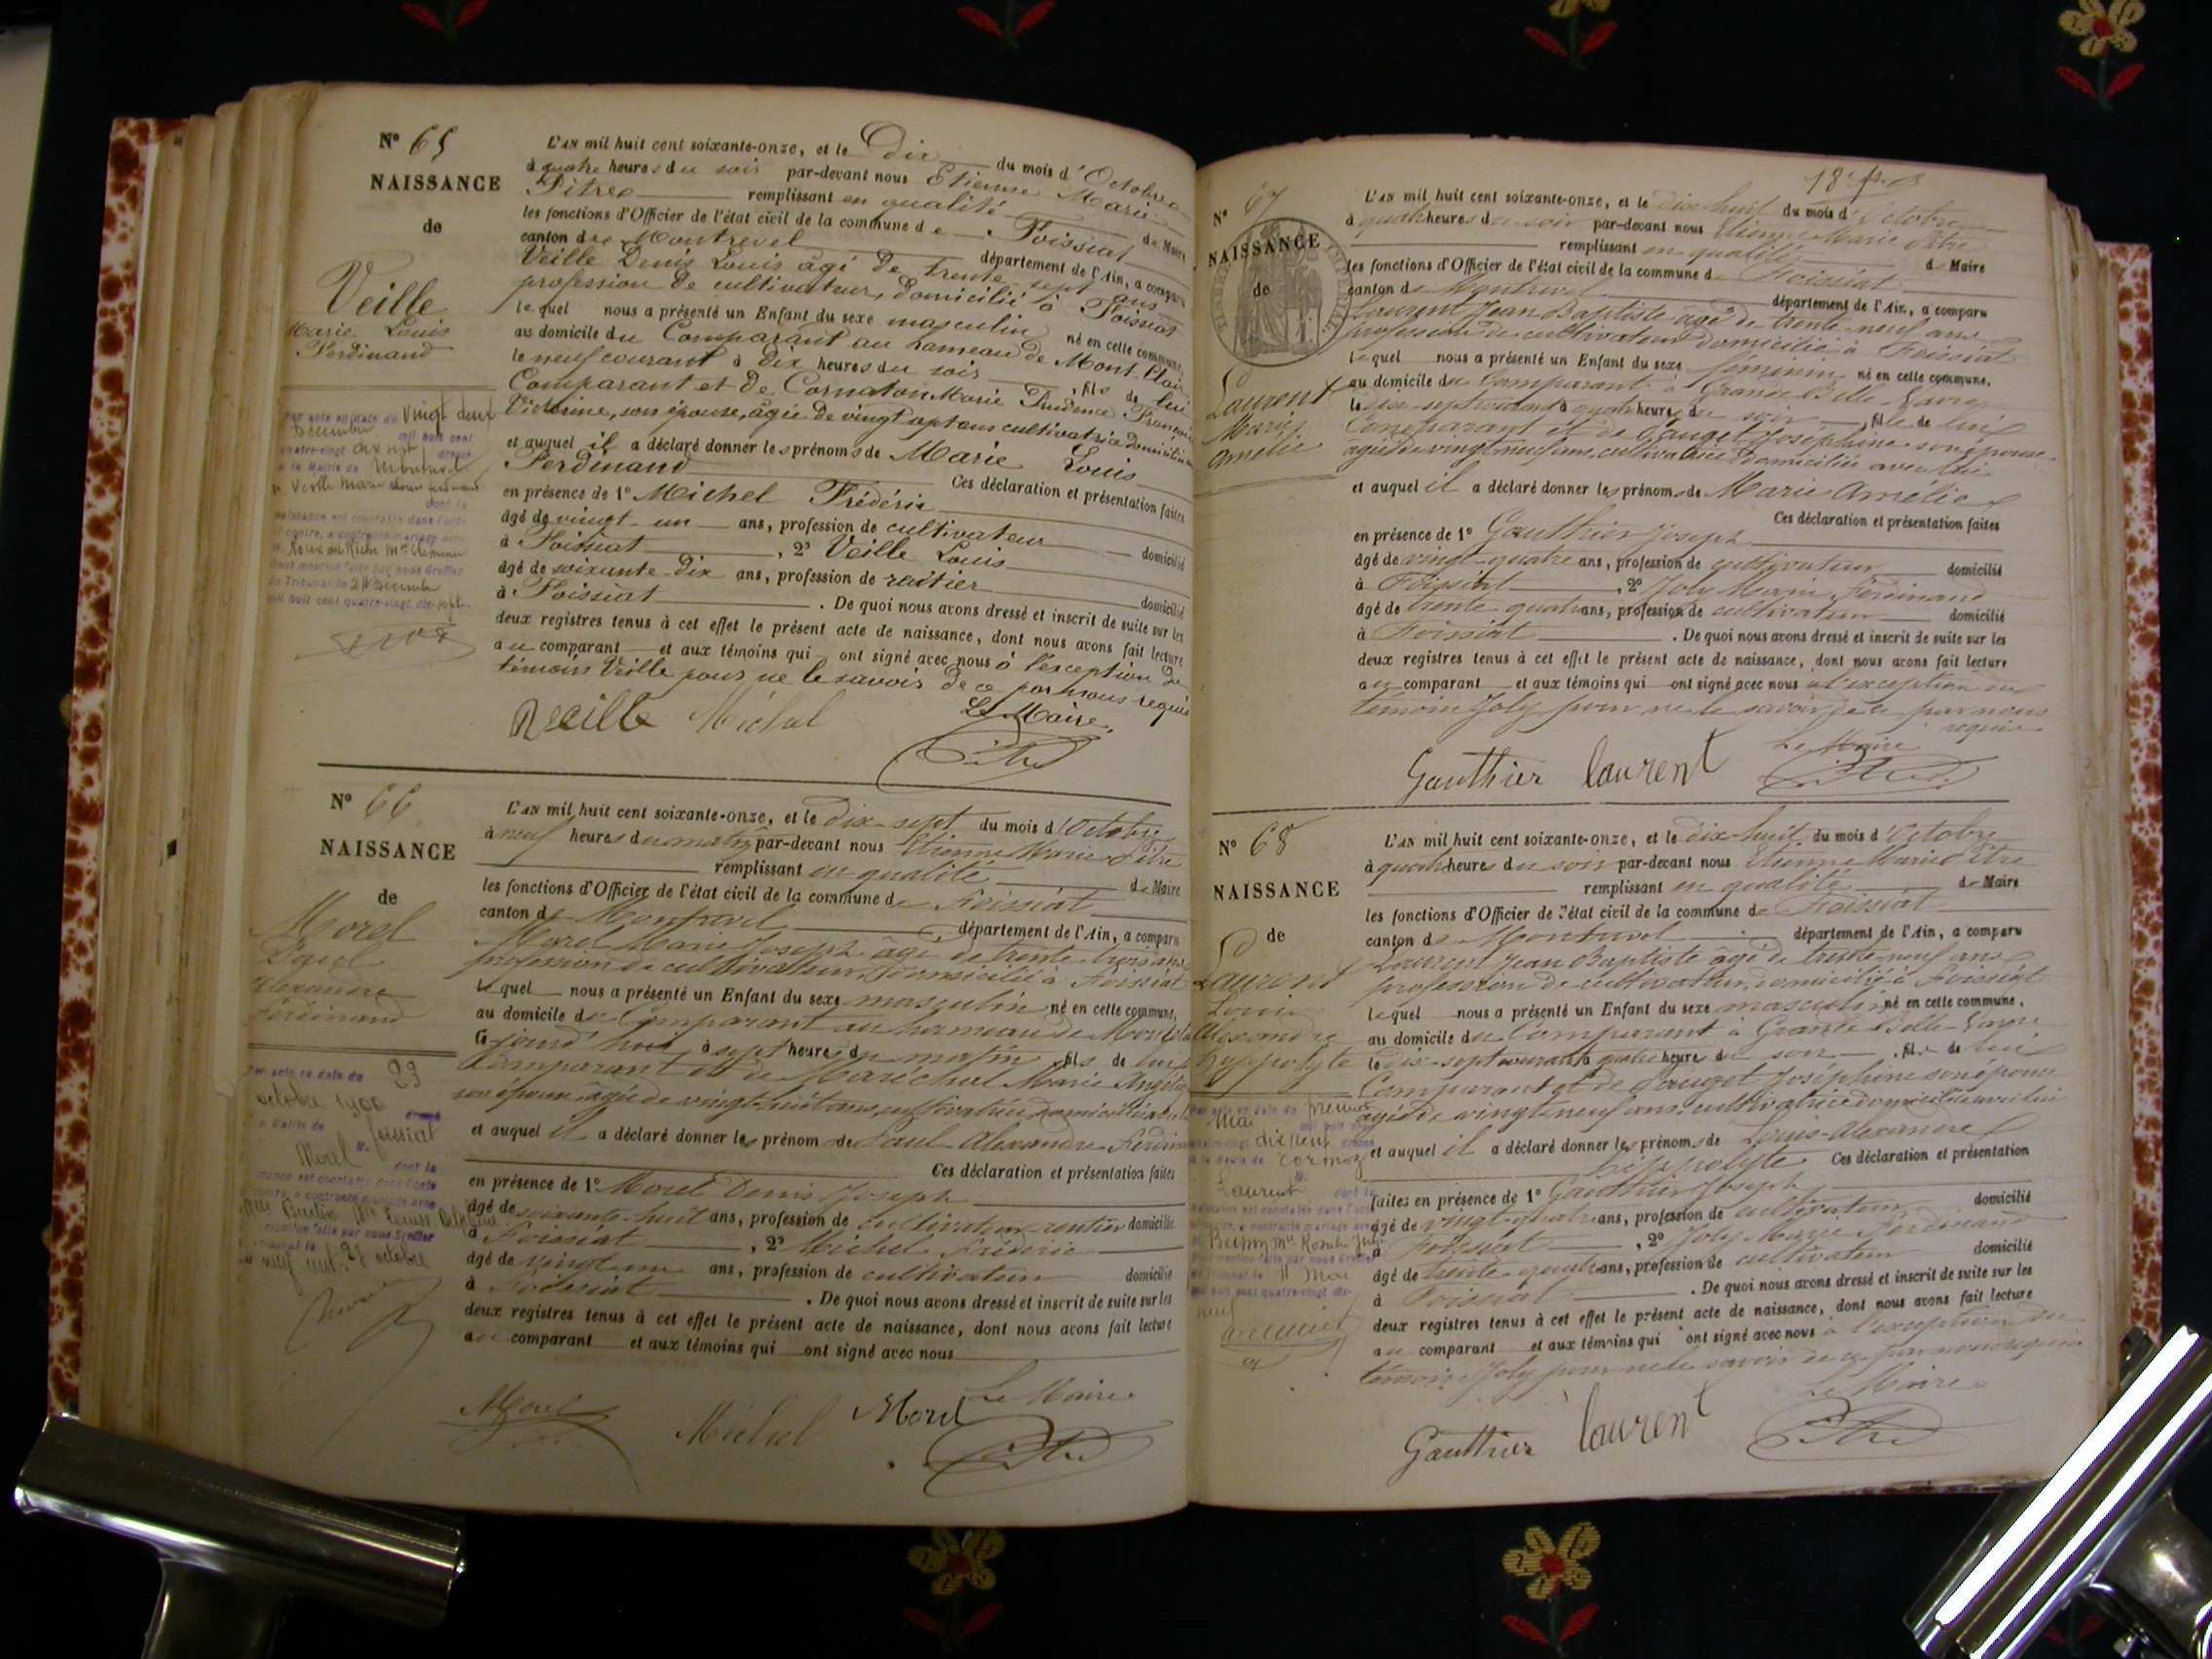 Nº 65
NAISSANCE
de
Veille
Marie Louis
Ferdinand
L'AN mil huit cent soixante-onze, et le Dix du mois d'Octobre
à quatre heures du soir par-devant nous Etienne Marie
Pitre remplissant en qualité de Maire
les fonctions d'Officier de l'état civil de la commune de Foissiat
canton de Montrevel département de l'Ain, a comparu
Veille Denis Louis âgé de trente-sept ans
profession de cultivateur, domicilié à Foissiat
lequel nous a présenté un Enfant du sexe masculin né en cette commune,
au domicile du Comparant au hameau de Mont
le neuf courant à Dix heures du soir, fils de lui
Comparant et de Cornaton Marie Prudence Françoise
Victorine, son épouse, âgée de vingt sept ans cultivatrice domiciliée
et auquel il a déclaré donner les prénoms de Marie Louis
Ferdinand Ces déclaration et présentation faites
en présence de 1º Michel Frédéric
âgé de vingt-un ans, profession de cultivateur domicilié
à Foissiat, 2º Veille Louis
âgé de soixante-dix ans, profession de rentier domicilié
à Foissiat. De quoi nous avons dressé et inscrit de suite sur les
deux registres tenus à cet effet le présent acte de naissance, dont nous avons fait lecture
au comparant et aux témoins qui ont signé avec nous à l'exception du
témoin Veille pour ne le savoir de ce par nous requis
Veille Michel Le Maire
Pitre
Par acte en date du Vingt deux
Décembre mil huit cent
quatre-vingt dix sept dressé
à la Mairie de Montrevel
Veille Marie Louis Ferdinand
dont la
naissance est constatée dans l'acte
ci-contre, a contracté mariage avec
Dont mention faite par nous Greffier
du Tribunal le 24 Décembre
mil huit cent quatre-vingt dix-sept.
Nº 66
NAISSANCE
de
Morel
Paul
Alexandre
Ferdinand
L'AN mil huit cent soixante-onze, et le dix-sept du mois d'Octobre
à neuf heures du matin par-devant nous Etienne Marie Pitre
remplissant en qualité de Maire
les fonctions d'Officier de l'état civil de la commune de Foissiat
canton de Montrevel département de l'Ain, a comparu
Morel Marie Joseph âgé de trente-trois ans
profession de cultivateur, domicilié à Foissiat
lequel nous a présenté un Enfant du sexe masculin né en cette commune,
au domicile du Comparant au hameau de
le jourd'hui à sept heures du matin, fils de lui
Comparant et de Maréchal Marie Angélique
son épouse âgée de vingt-huit ans, cultivatrice domiciliée
et auquel il a déclaré donner les prénoms de Paul Alexandre Ferdinand
Ces déclaration et présentation faites
en présence de 1º Morel Denis Joseph
âgé de soixante-huit ans, profession de cultivateur rentier domicilié
à Foissiat, 2º Michel Frédéric
âgé de vingt-un ans, profession de cultivateur domicilié
à Foissiat. De quoi nous avons dressé et inscrit de suite sur les
deux registres tenus à cet effet le présent acte de naissance, dont nous avons fait lecture
au comparant et aux témoins qui ont signé avec nous
Morel Michel Morel Le Maire
Pitre
Par acte en date du 23
octobre 1900 dressé
Mairie de Foissiat
Morel dont la
naissance est constatée dans l'acte
a contracté mariage avec
mention faite par nous Greffier
27 octobre
18
Nº 67
NAISSANCE
de
Laurent
Marie
Amélie
L'AN mil huit cent soixante-onze, et le dix-huit du mois d'Octobre
à quatre heures du soir par-devant nous Etienne Marie Pitre
remplissant en qualité de Maire
les fonctions d'Officier de l'état civil de la commune de Foissiat
canton de Montrevel département de l'Ain, a comparu
Laurent Jean Baptiste âgé de trente-neuf ans
profession de cultivateur domicilié à Foissiat
lequel nous a présenté un Enfant du sexe féminin né en cette commune,
au domicile du Comparant à Grande Belle-Vavre
le dix-sept courant à quatre heures du soir, fille de lui
Comparant et de Pauget Joséphine son épouse
âgée de vingt-neuf ans, cultivatrice domiciliée avec lui
et auquel il a déclaré donner les prénoms de Marie Amélie
Ces déclaration et présentation faites
en présence de 1º Gauthier Joseph
âgé de vingt-quatre ans, profession de cultivateur domicilié
à Foissiat, 2º Joly Marie Ferdinand
âgé de trente-quatre ans, profession de cultivateur domicilié
à Foissiat. De quoi nous avons dressé et inscrit de suite sur les
deux registres tenus à cet effet le présent acte de naissance, dont nous avons fait lecture
au comparant et aux témoins qui ont signé avec nous à l'exception du
témoin Joly pour ne le savoir de ce par nous
requis
Gauthier laurent Le Maire
Pitre
Nº 68
NAISSANCE
de
Laurent
Louis
Alexandre
hyppolyte
L'AN mil huit cent soixante-onze, et le dix-huit du mois d'Octobre
à quatre heures du soir par-devant nous Etienne Marie Pitre
remplissant en qualité de Maire
les fonctions d'Officier de l'état civil de la commune de Foissiat
canton de Montrevel département de l'Ain, a comparu
Laurent Jean Baptiste âgé de trente-neuf ans
profession de cultivateur, domicilié à Foissiat
lequel nous a présenté un Enfant du sexe masculin né en cette commune,
au domicile du Comparant à Grande Belle-Vavre
le dix-sept courant à quatre heures du soir, fils de lui
Comparant et de Pauget Joséphine son épouse
âgée de vingt-neuf ans, cultivatrice domiciliée avec lui
et auquel il a déclaré donner les prénoms de Louis-Alexandre
hyppolyte Ces déclaration et présentation
faites en présence de 1º Gauthier Joseph
âgé de vingt-quatre ans, profession de cultivateur domicilié
à Foissiat, 2º Joly Marie Ferdinand
âgé de trente-quatre ans, profession de cultivateur domicilié
à Foissiat. De quoi nous avons dressé et inscrit de suite sur les
deux registres tenus à cet effet le présent acte de naissance, dont nous avons fait lecture
au comparant et aux témoins qui ont signé avec nous à l'exception du
témoin Joly pour ne le savoir de ce par nous requis
Gauthier laurent Le Maire
Pitre
Par acte en date du premier
Mai mil huit cent
dix neuf dressé
à la Mairie de Cormoz
Laurent dont la
naissance est constatée dans l'acte
a contracté mariage avec
mention faite par nous Greffier
11 Mai
mil huit cent quatre-vingt dix-
neuf